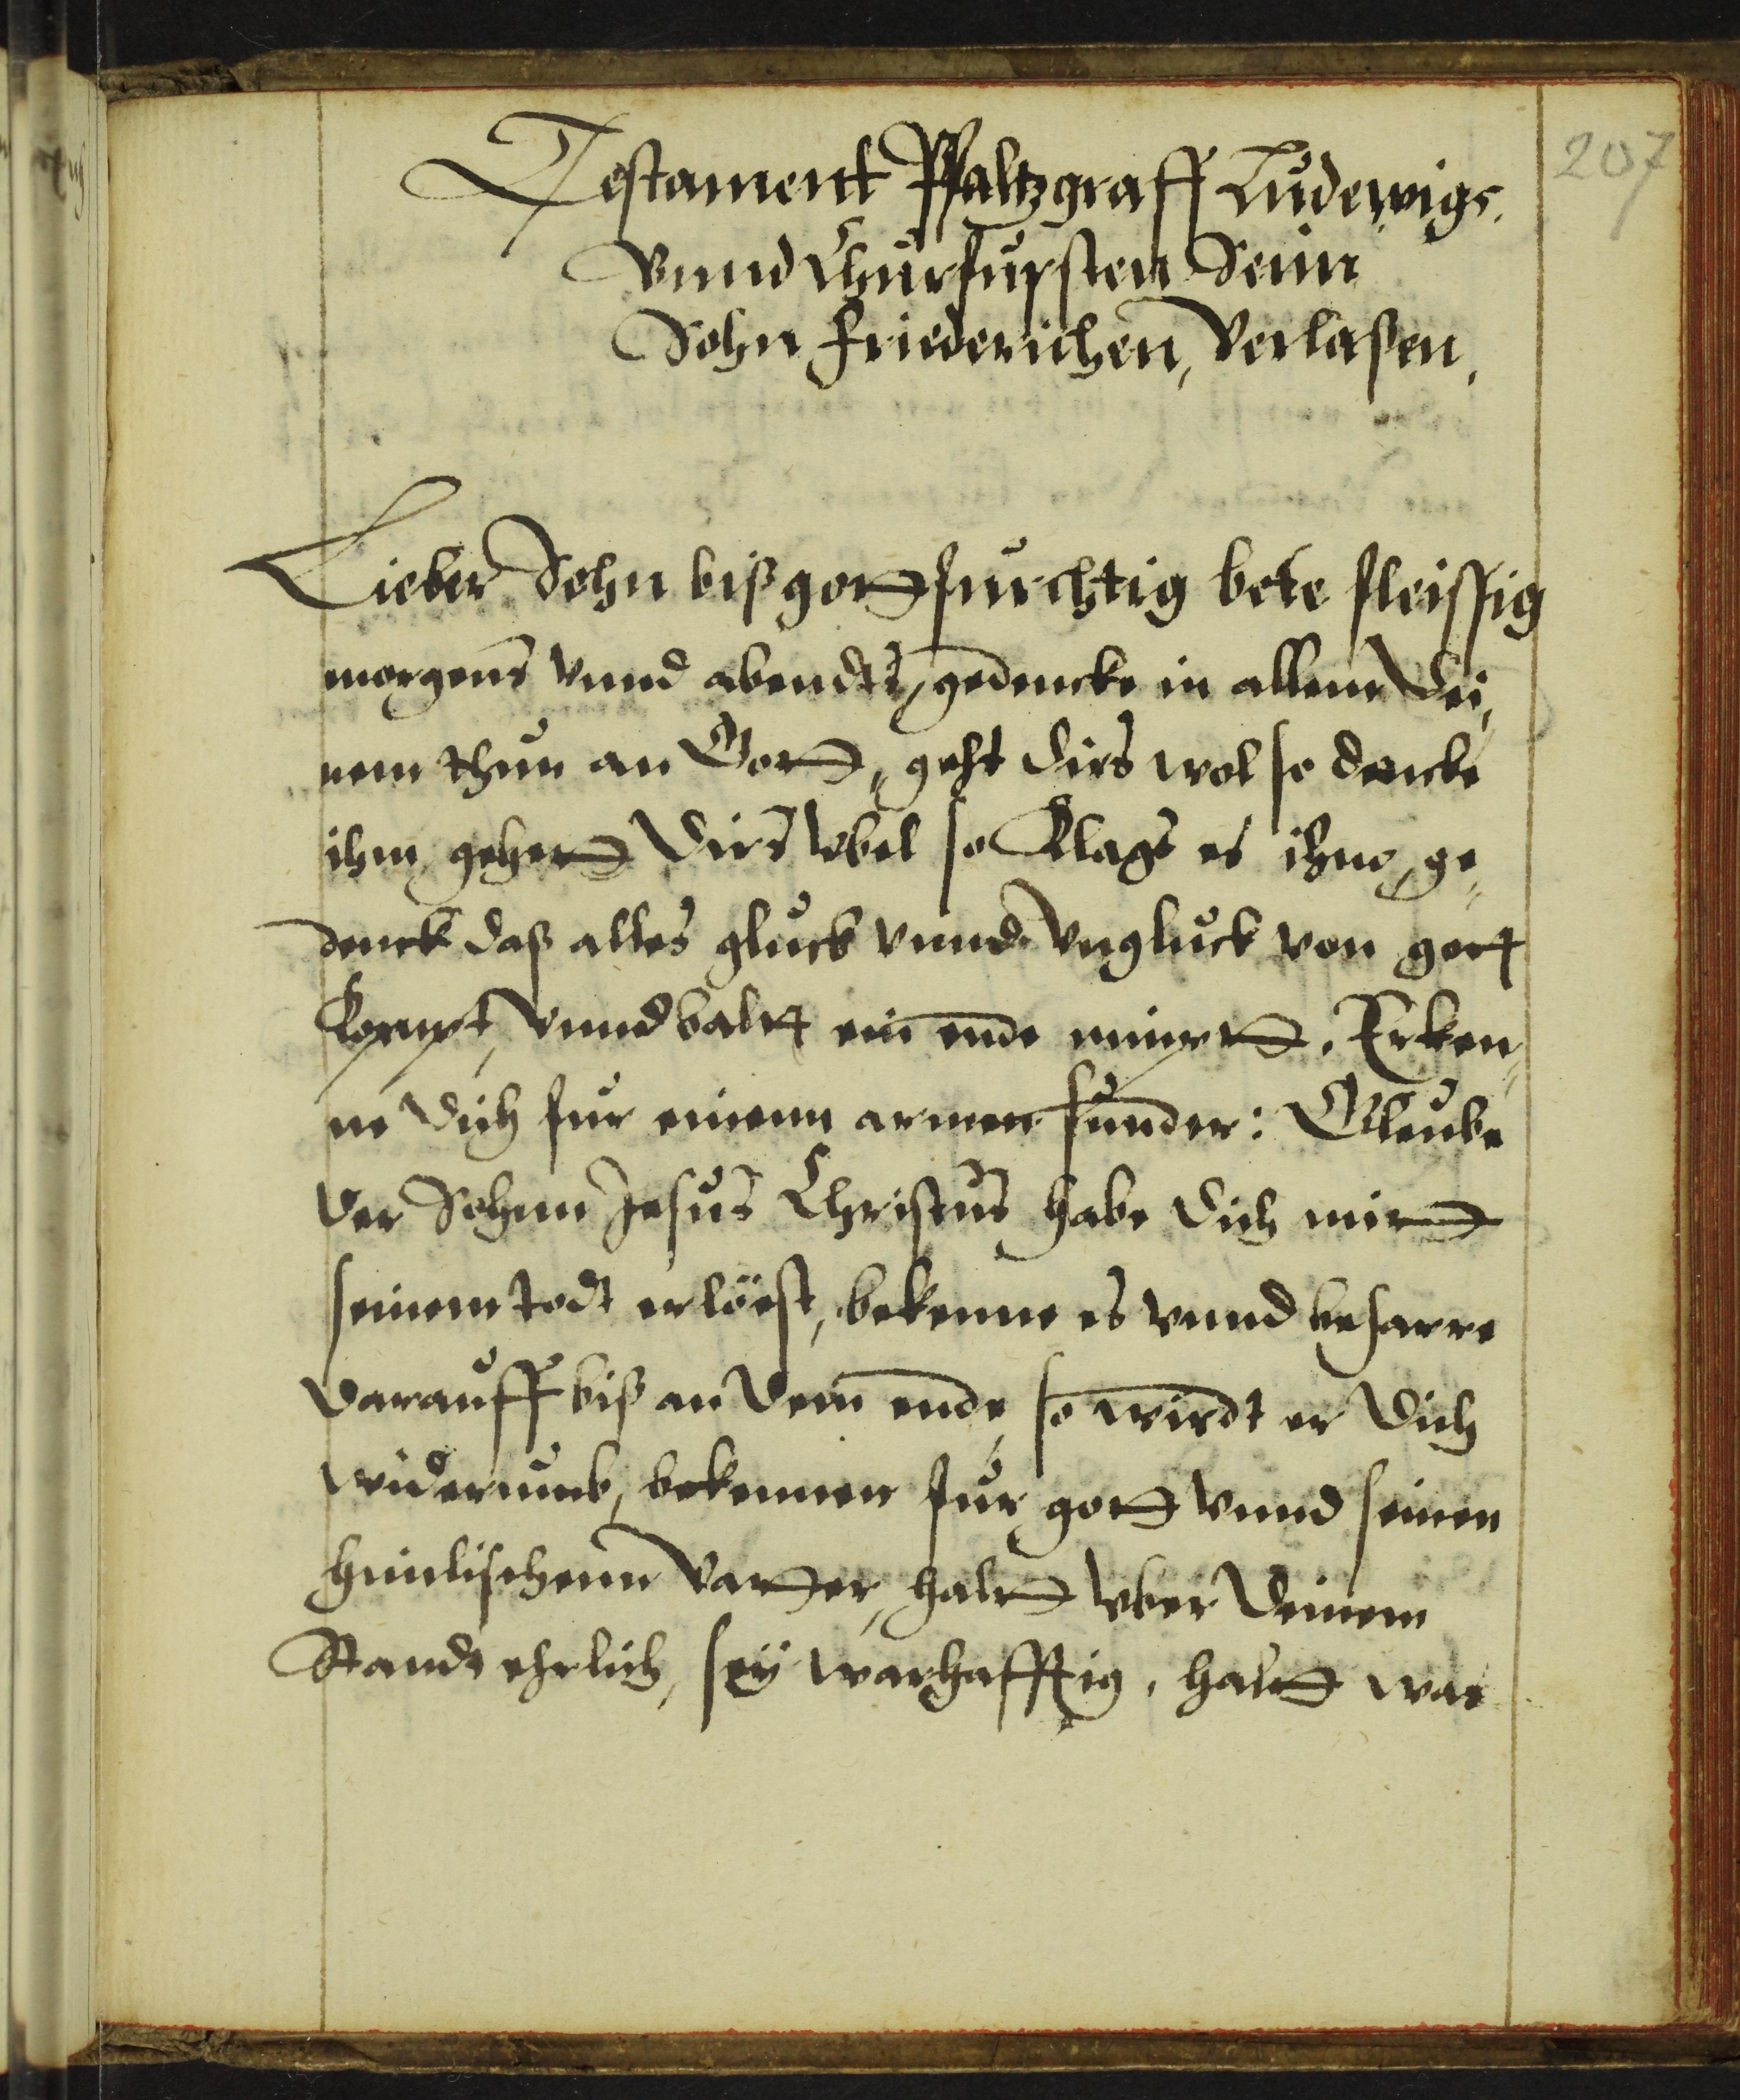 207
Testament Pfaltzgraff Ludewigs
Vnnd Churfursten Seim
Sohn Friederichen, Verlaßen,
Lieber Sohn biß gottfurchtig bete fleissig
morgens vnnd abendts, gedencke in allem dei,
nem thun an Gott, geht dirs wol so dancke
ihm, gehett dirs vbel so klags es ihme, ge,
denck daß alles gluck vnnd vngluck von gott
kompt, vnnd baltt ein ende nimptt. Erken,
ne dich fur einenn armen sunder: Gleube
der Sohnn Jesus Christus habe dich mitt
seinem todt erlöest, bekenne es vnnd beharre
darauff biß an dein ende, so wirdt er dich
widerumb, bekennen fur gott vnnd seinen
himlischenn Vatter, haltt vber deinem
Stande ehrlich, seÿ warhafftig, haltt was